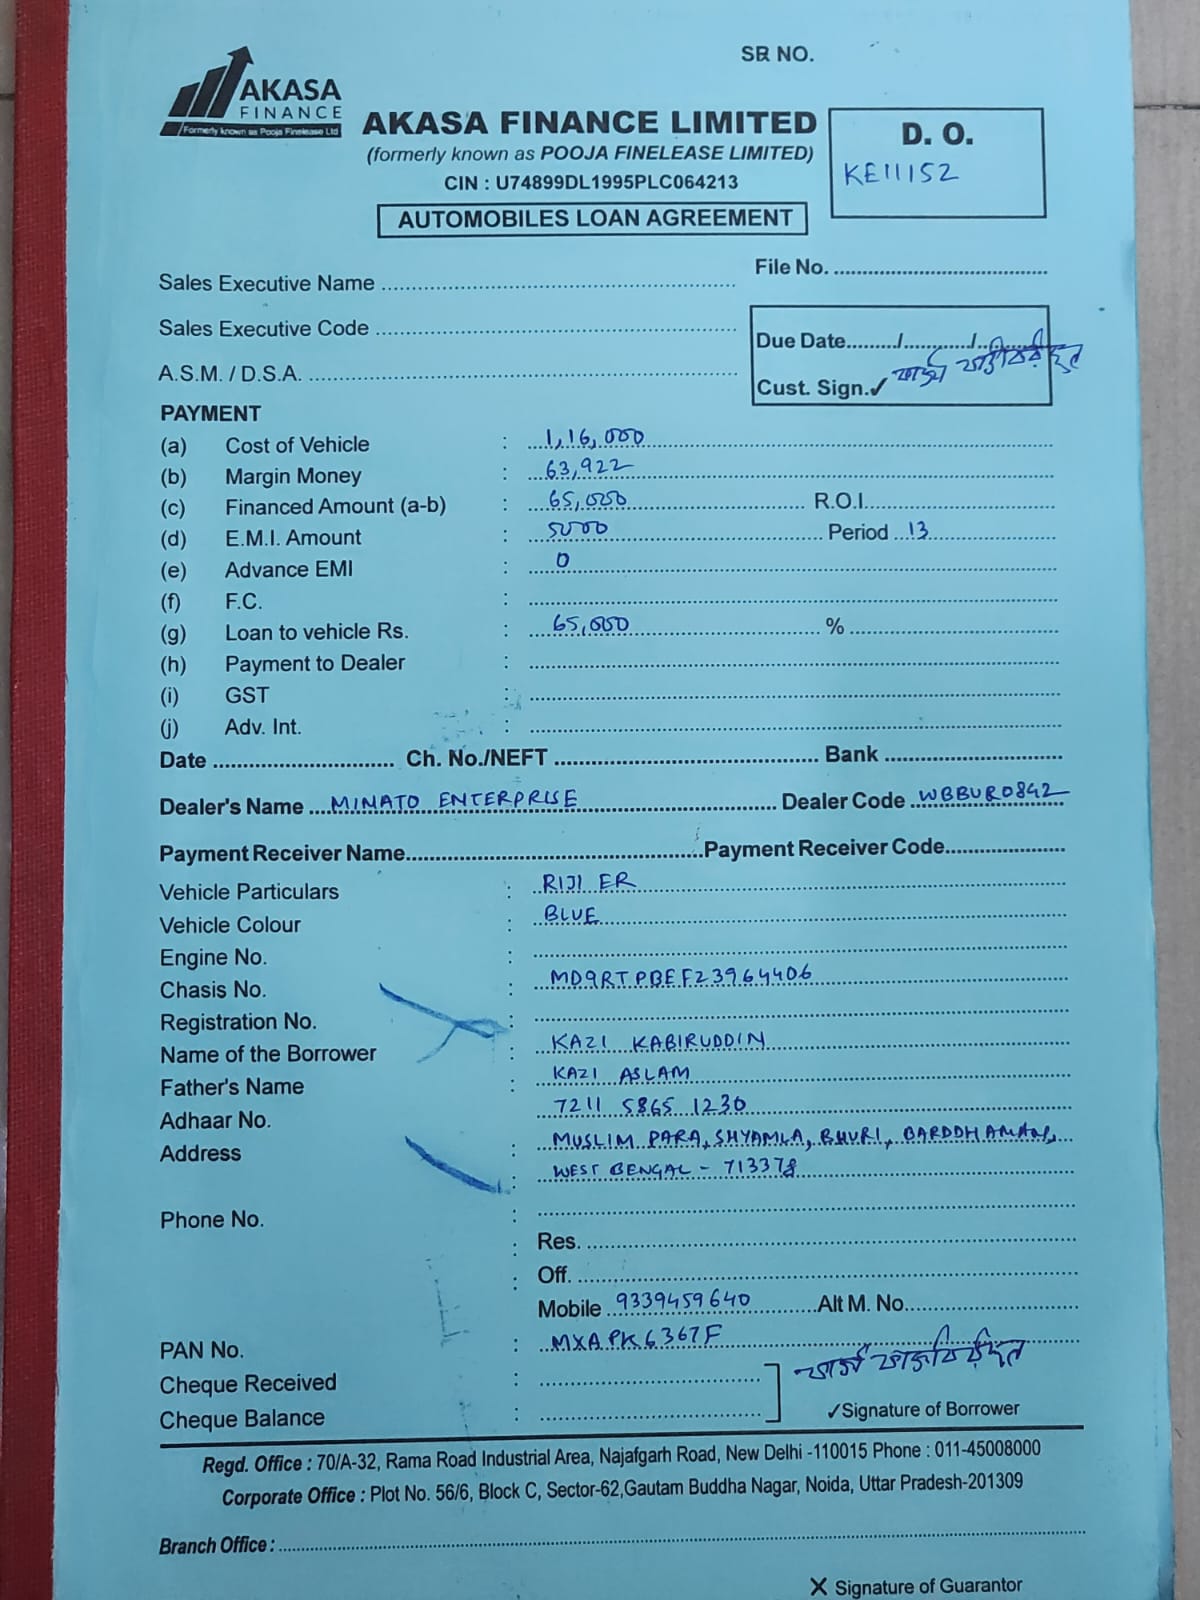 SR NO.
AKASA
FINANCE
Formerly known as Pooja Finelease Ltd
AKASA FINANCE LIMITED
(formerly known as POOJA FINELEASE LIMITED)
CIN : U74899DL1995PLC064213
AUTOMOBILES LOAN AGREEMENT
D. O.
KE11152
File No.
Sales Executive Name
Sales Executive Code
A.S.M. / D.S.A.
Due Date........./............/............
Cust. Sign.✓
PAYMENT
(a) Cost of Vehicle : 1,16,000
(b) Margin Money : 63,922
(c) Financed Amount (a-b) : 65,000 R.O.I.
(d) E.M.I. Amount : 5000 Period 13
(e) Advance EMI : 0
(f) F.C. :
(g) Loan to vehicle Rs. : 65,000 %
(h) Payment to Dealer :
(i) GST :
(j) Adv. Int. :
Date Ch. No./NEFT Bank
Dealer's Name MINATO ENTERPRISE Dealer Code WBBUR0842
Payment Receiver Name Payment Receiver Code
Vehicle Particulars : RIJI ER
Vehicle Colour : BLUE
Engine No. :
Chasis No. : MD9RTPBEF23964406
Registration No. :
Name of the Borrower : KAZI KABIRUDDIN
Father's Name : KAZI ASLAM
Adhaar No. 7211 5865 1230
Address : MUSLIM PARA, SHYAMLA, BHURI, BARDDHAMAN,
: WEST BENGAL - 713378
Phone No. :
: Res.
: Off.
Mobile 9339459640 Alt M. No.
PAN No. : MXAPK6367F
Cheque Received :
Cheque Balance :
✓Signature of Borrower
Regd. Office : 70/A-32, Rama Road Industrial Area, Najafgarh Road, New Delhi -110015 Phone : 011-45008000
Corporate Office : Plot No. 56/6, Block C, Sector-62,Gautam Buddha Nagar, Noida, Uttar Pradesh-201309
Branch Office :
X Signature of Guarantor